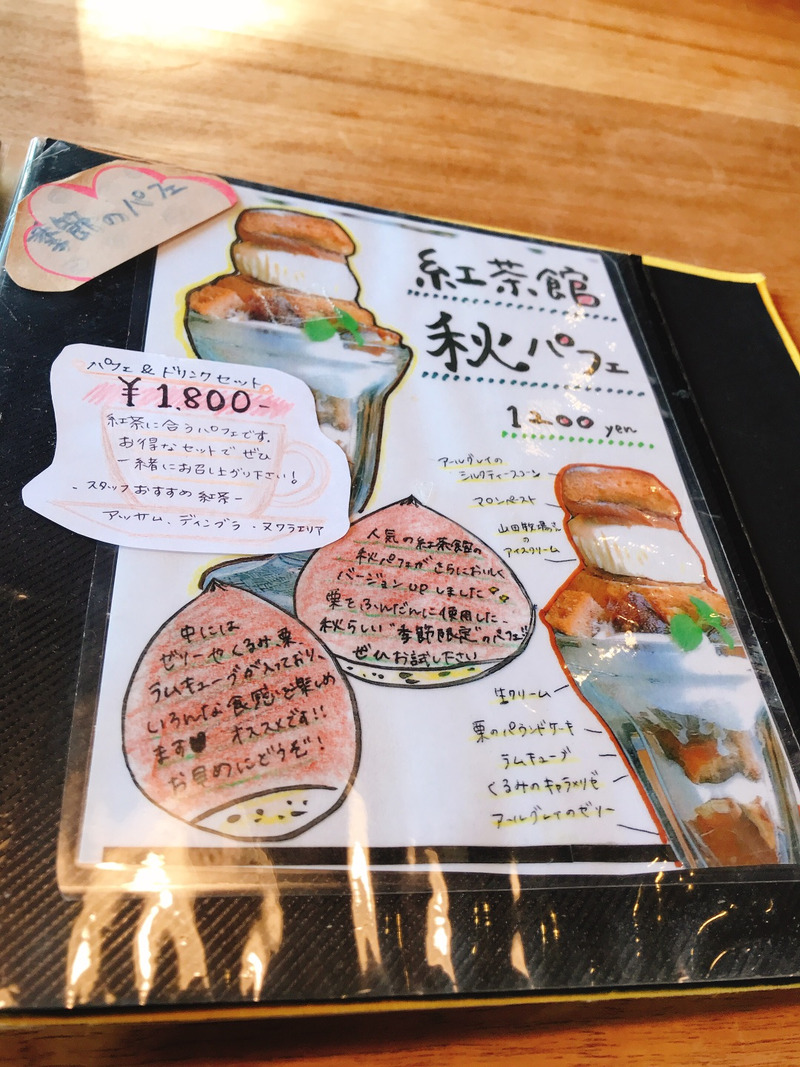 季節のパフェ
紅茶館
秋パフェ
1200 yen
パフェ & ドリンクセット
¥1.800-
紅茶に合うパフェです。
お得なセットで ぜひ
一緒にお召し上がり下さい!
- スタッフおすすめ 紅茶 -
アッサム、ディンブラ・ヌワラエリア
アールグレイの
シルクティースコーン
マロンペースト
山田牧場さん
の
アイスクリーム
人気の紅茶館の
秋パフェがさらにおいしく
バージョンupしました
栗をふんだんに使用した、
秋らしい"季節限定"のパフェ
ぜひお試し下さい
中には
ゼリーやくるみ、栗、
ラムキューブが入っており、
いろんな食感を楽しめ
ます♥ オススメです!!
お早めにどうぞ!
生クリーム
栗のパウンドケーキ
ラムキューブ
くるみのキャラメリゼ
アールグレイのゼリー